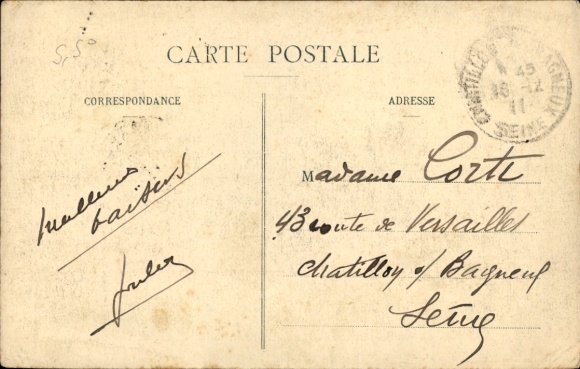 5,50
CARTE POSTALE
CORRESPONDANCE
ADRESSE
CHATILLON BAGNEUX
45
16-12
11
SEINE
Meilleurs
baisers
Madame Corti
43 route de Versailles
Chatillon s/ Bagneux
Seine